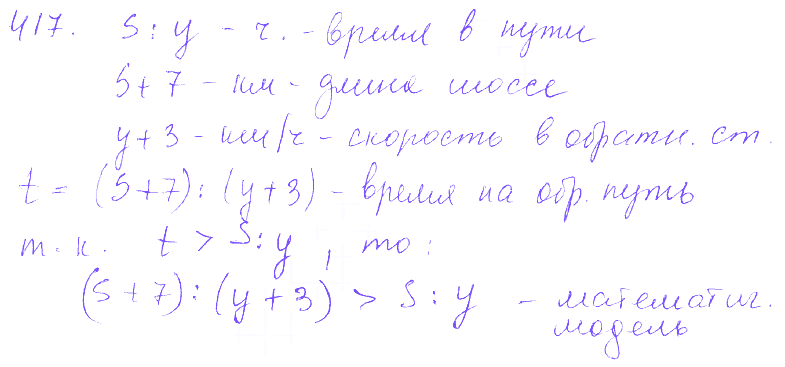 417. S : y - ч. - время в пути
S + 7 - км - длина шоссе
y + 3 - км/ч - скорость в обратн. ст.
t = (S + 7) : (y + 3) - время на обр. путь
т.к. t > S : y, то:
(S + 7) : (y + 3) > S : y - математич.
модель